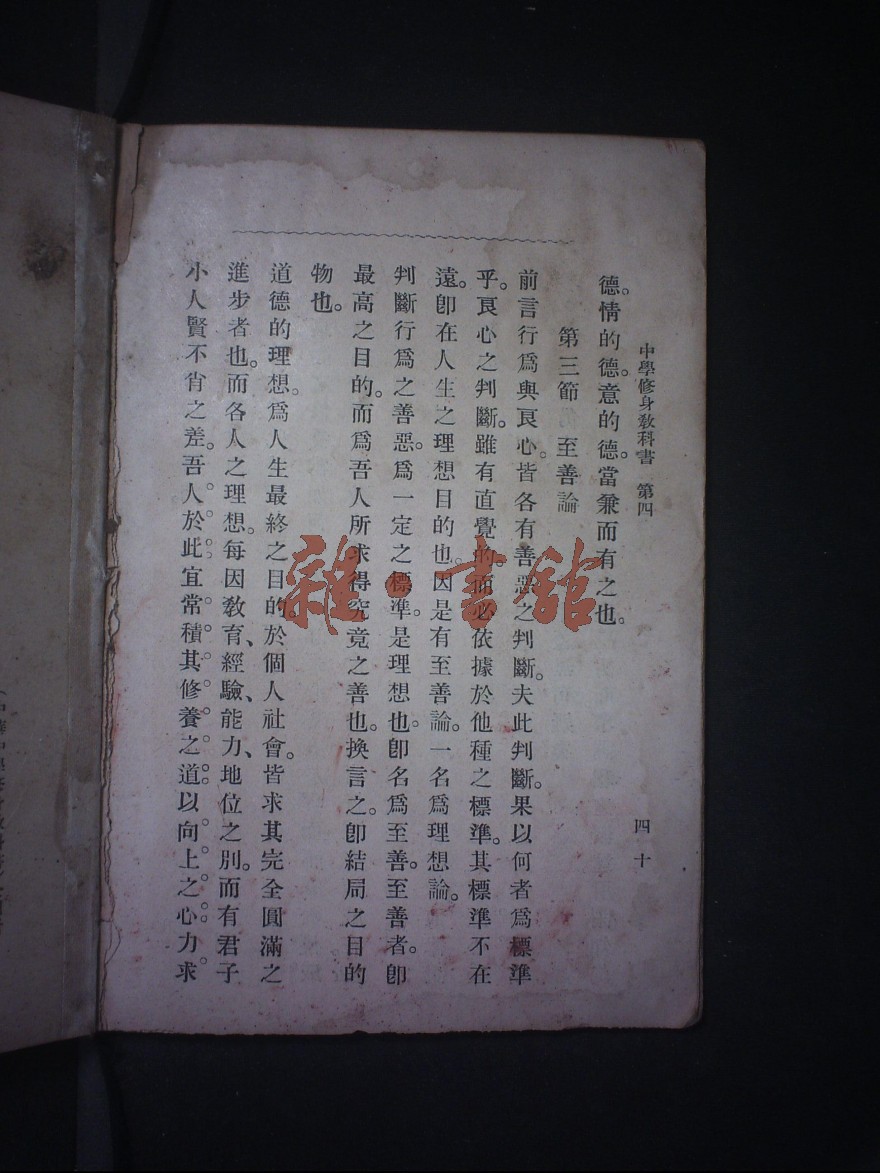 中學修身敎科書 第四
四十
德。情的德。意的德。當兼而有之也。
第三節 至善論
前言行爲與良心。皆各有善惡之判斷。夫此判斷。果以何者爲標準
乎。良心之判斷。雖有直覺的。而必依據於他種之標準。其標準不在
遠。卽在人生之理想目的也。因是有至善論。一名爲理想論。
判斷行爲之善惡。爲一定之標準。是理想也。卽名爲至善。至善者。卽
最高之目的。而爲吾人所求得究竟之善也。換言之。卽結局之目的
物也。
道德的理想。爲人生最終之目的。於個人社會。皆求其完全圓滿之
進步者也。而各人之理想。每因敎育、經驗、能力、地位之別。而有君子
小人賢不肖之差。吾人於此宜常積其修養之道。以向上之心力求
雜·書館